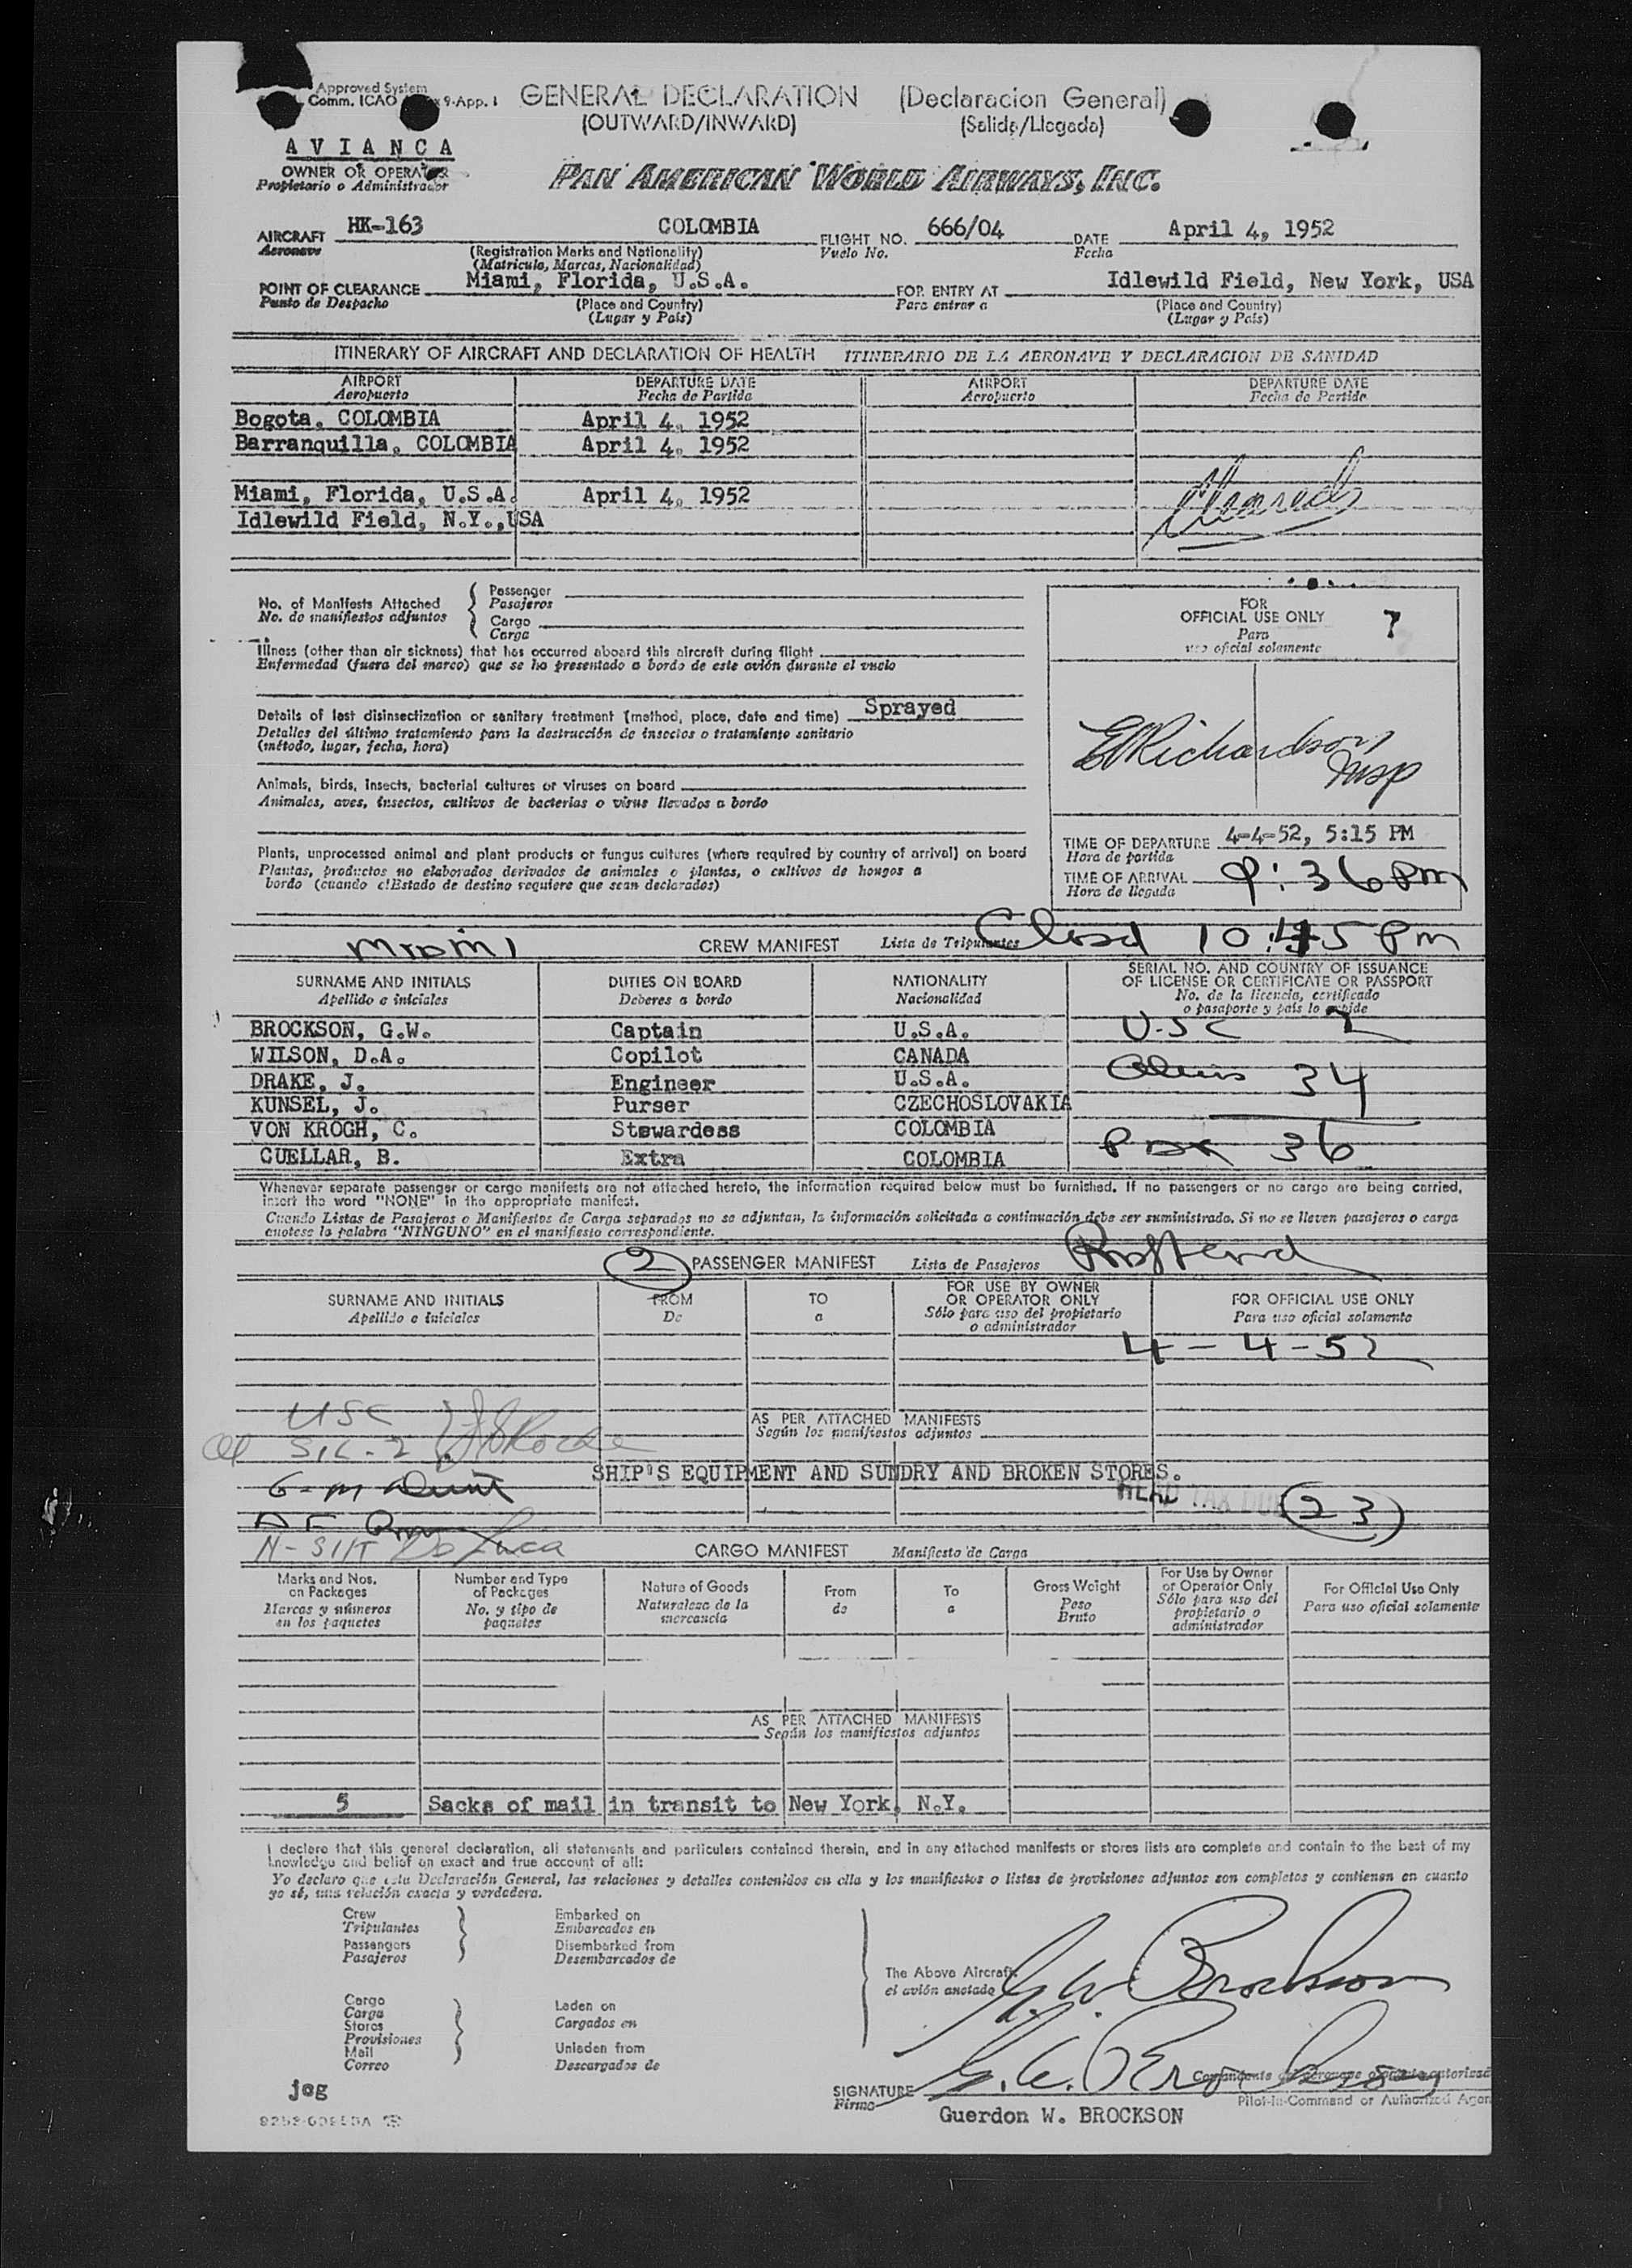 Approved System
Comm. ICAO 9-App. 1
GENERAL DECLARATION (Declaracion General)
(OUTWARD/INWARD) (Salida/Llegada)
AVIANCA
OWNER OR OPERATOR
Propietario o Administrador
PAN AMERICAN WORLD AIRWAYS, INC.
AIRCRAFT HK-163 COLOMBIA FLIGHT NO. 666/04 DATE April 4, 1952
Aeronave (Registration Marks and Nationality) Vuelo No. Fecha
(Matricula, Marcas, Nacionalidad)
POINT OF CLEARANCE Miami, Florida, U.S.A. FOR ENTRY AT Idlewild Field, New York, USA
Punto de Despacho (Place and Country) Para entrar a (Place and Country)
(Lugar y País) (Lugar y País)
ITINERARY OF AIRCRAFT AND DECLARATION OF HEALTH ITINERARIO DE LA AERONAVE Y DECLARACION DE SANIDAD
AIRPORT DEPARTURE DATE AIRPORT DEPARTURE DATE
Aeropuerto Fecha de Partida Aeropuerto Fecha de Partida
Bogota, COLOMBIA April 4, 1952
Barranquilla, COLOMBIA April 4, 1952
Miami, Florida, U.S.A. April 4, 1952
Cleared
Idlewild Field, N.Y.,USA
No. of Manifests Attached
No. de manifiestos adjuntos
Passenger
Pasajeros
Cargo
Carga
FOR
OFFICIAL USE ONLY 7
Para
uso oficial solamente
Illness (other than air sickness) that has occurred aboard this aircraft during flight
Enfermedad (fuera del mareo) que se ha presentado a bordo de este avión durante el vuelo
Details of last disinsectization or sanitary treatment (method, place, date and time) Sprayed
Detalles del último tratamiento para la destrucción de insectos o tratamiento sanitario
(método, lugar, fecha, hora)
E Richardson
Insp
Animals, birds, insects, bacterial cultures or viruses on board
Animales, aves, insectos, cultivos de bacterias o virus llevados a bordo
Plants, unprocessed animal and plant products or fungus cultures (where required by country of arrival) on board
Plantas, productos no elaborados derivados de animales o plantas, o cultivos de hongos a
bordo (cuando el Estado de destino requiere que sean declarados)
TIME OF DEPARTURE 4-4-52, 5:15 PM
Hora de partida
TIME OF ARRIVAL 9:36 PM
Hora de llegada
Miami CREW MANIFEST Lista de Tripulantes Closed 10:45 PM
SURNAME AND INITIALS DUTIES ON BOARD NATIONALITY SERIAL NO. AND COUNTRY OF ISSUANCE
OF LICENSE OR CERTIFICATE OR PASSPORT
Apellido e iniciales Deberes a bordo Nacionalidad No. de la licencia, certificado
o pasaporte y país lo expide
BROCKSON, G.W. Captain U.S.A. USC 2
WILSON, D.A. Copilot CANADA
DRAKE, J. Engineer U.S.A. Aliens 34
KUNSEL, J. Purser CZECHOSLOVAKIA
VON KROGH, C. Stewardess COLOMBIA
CUELLAR, B. Extra COLOMBIA 36
Whenever separate passenger or cargo manifests are not attached hereto, the information required below must be furnished. If no passengers or no cargo are being carried,
insert the word "NONE" in the appropriate manifest.
Cuando Listas de Pasajeros o Manifiestos de Carga separados no se adjuntan, la información solicitada a continuación debe ser suministrada. Si no se lleven pasajeros o carga
anotese la palabra "NINGUNO" en el manifiesto correspondiente.
2 PASSENGER MANIFEST Lista de Pasajeros
SURNAME AND INITIALS FROM TO FOR USE BY OWNER
OR OPERATOR ONLY FOR OFFICIAL USE ONLY
Apellido e iniciales De a Sólo para uso del propietario
o administrador Para uso oficial solamente
4-4-52
USC
AS PER ATTACHED MANIFESTS
Según los manifiestos adjuntos
SHIP'S EQUIPMENT AND SUNDRY AND BROKEN STORES.
HEAD TAX DUE 23
CARGO MANIFEST Manifiesto de Carga
Marks and Nos.
on Packages
Marcas y números
en los paquetes
Number and Type
of Packages
No. y tipo de
paquetes
Nature of Goods
Naturaleza de la
mercancia
From
de
To
a
Gross Weight
Peso
Bruto
For Use by Owner
or Operator Only
Sólo para uso del
propietario o
administrador
For Official Use Only
Para uso oficial solamente
AS PER ATTACHED MANIFESTS
Según los manifiestos adjuntos
5 Sacks of mail in transit to New York, N.Y.
I declare that this general declaration, all statements and particulars contained therein, and in any attached manifests or stores lists are complete and contain to the best of my
knowledge and belief an exact and true account of all:
Yo declaro que esta Declaración General, las relaciones y detalles contenidos en ella y los manifiestos o listas de provisiones adjuntos son completos y contienen en cuanto
yo sé, una relación exacta y verdadera.
Crew
Tripulantes
Passengers
Pasajeros
Embarked on
Embarcados en
Disembarked from
Desembarcados de
The Above Aircraft
el avión anotado
G. W. Brockson
Cargo
Carga
Stores
Provisiones
Mail
Correo
Laden on
Cargados en
Unladen from
Descargados de
jeg
SIGNATURE
Firma
Pilot-in-Command or Authorized Agent
Guerdon W. BROCKSON